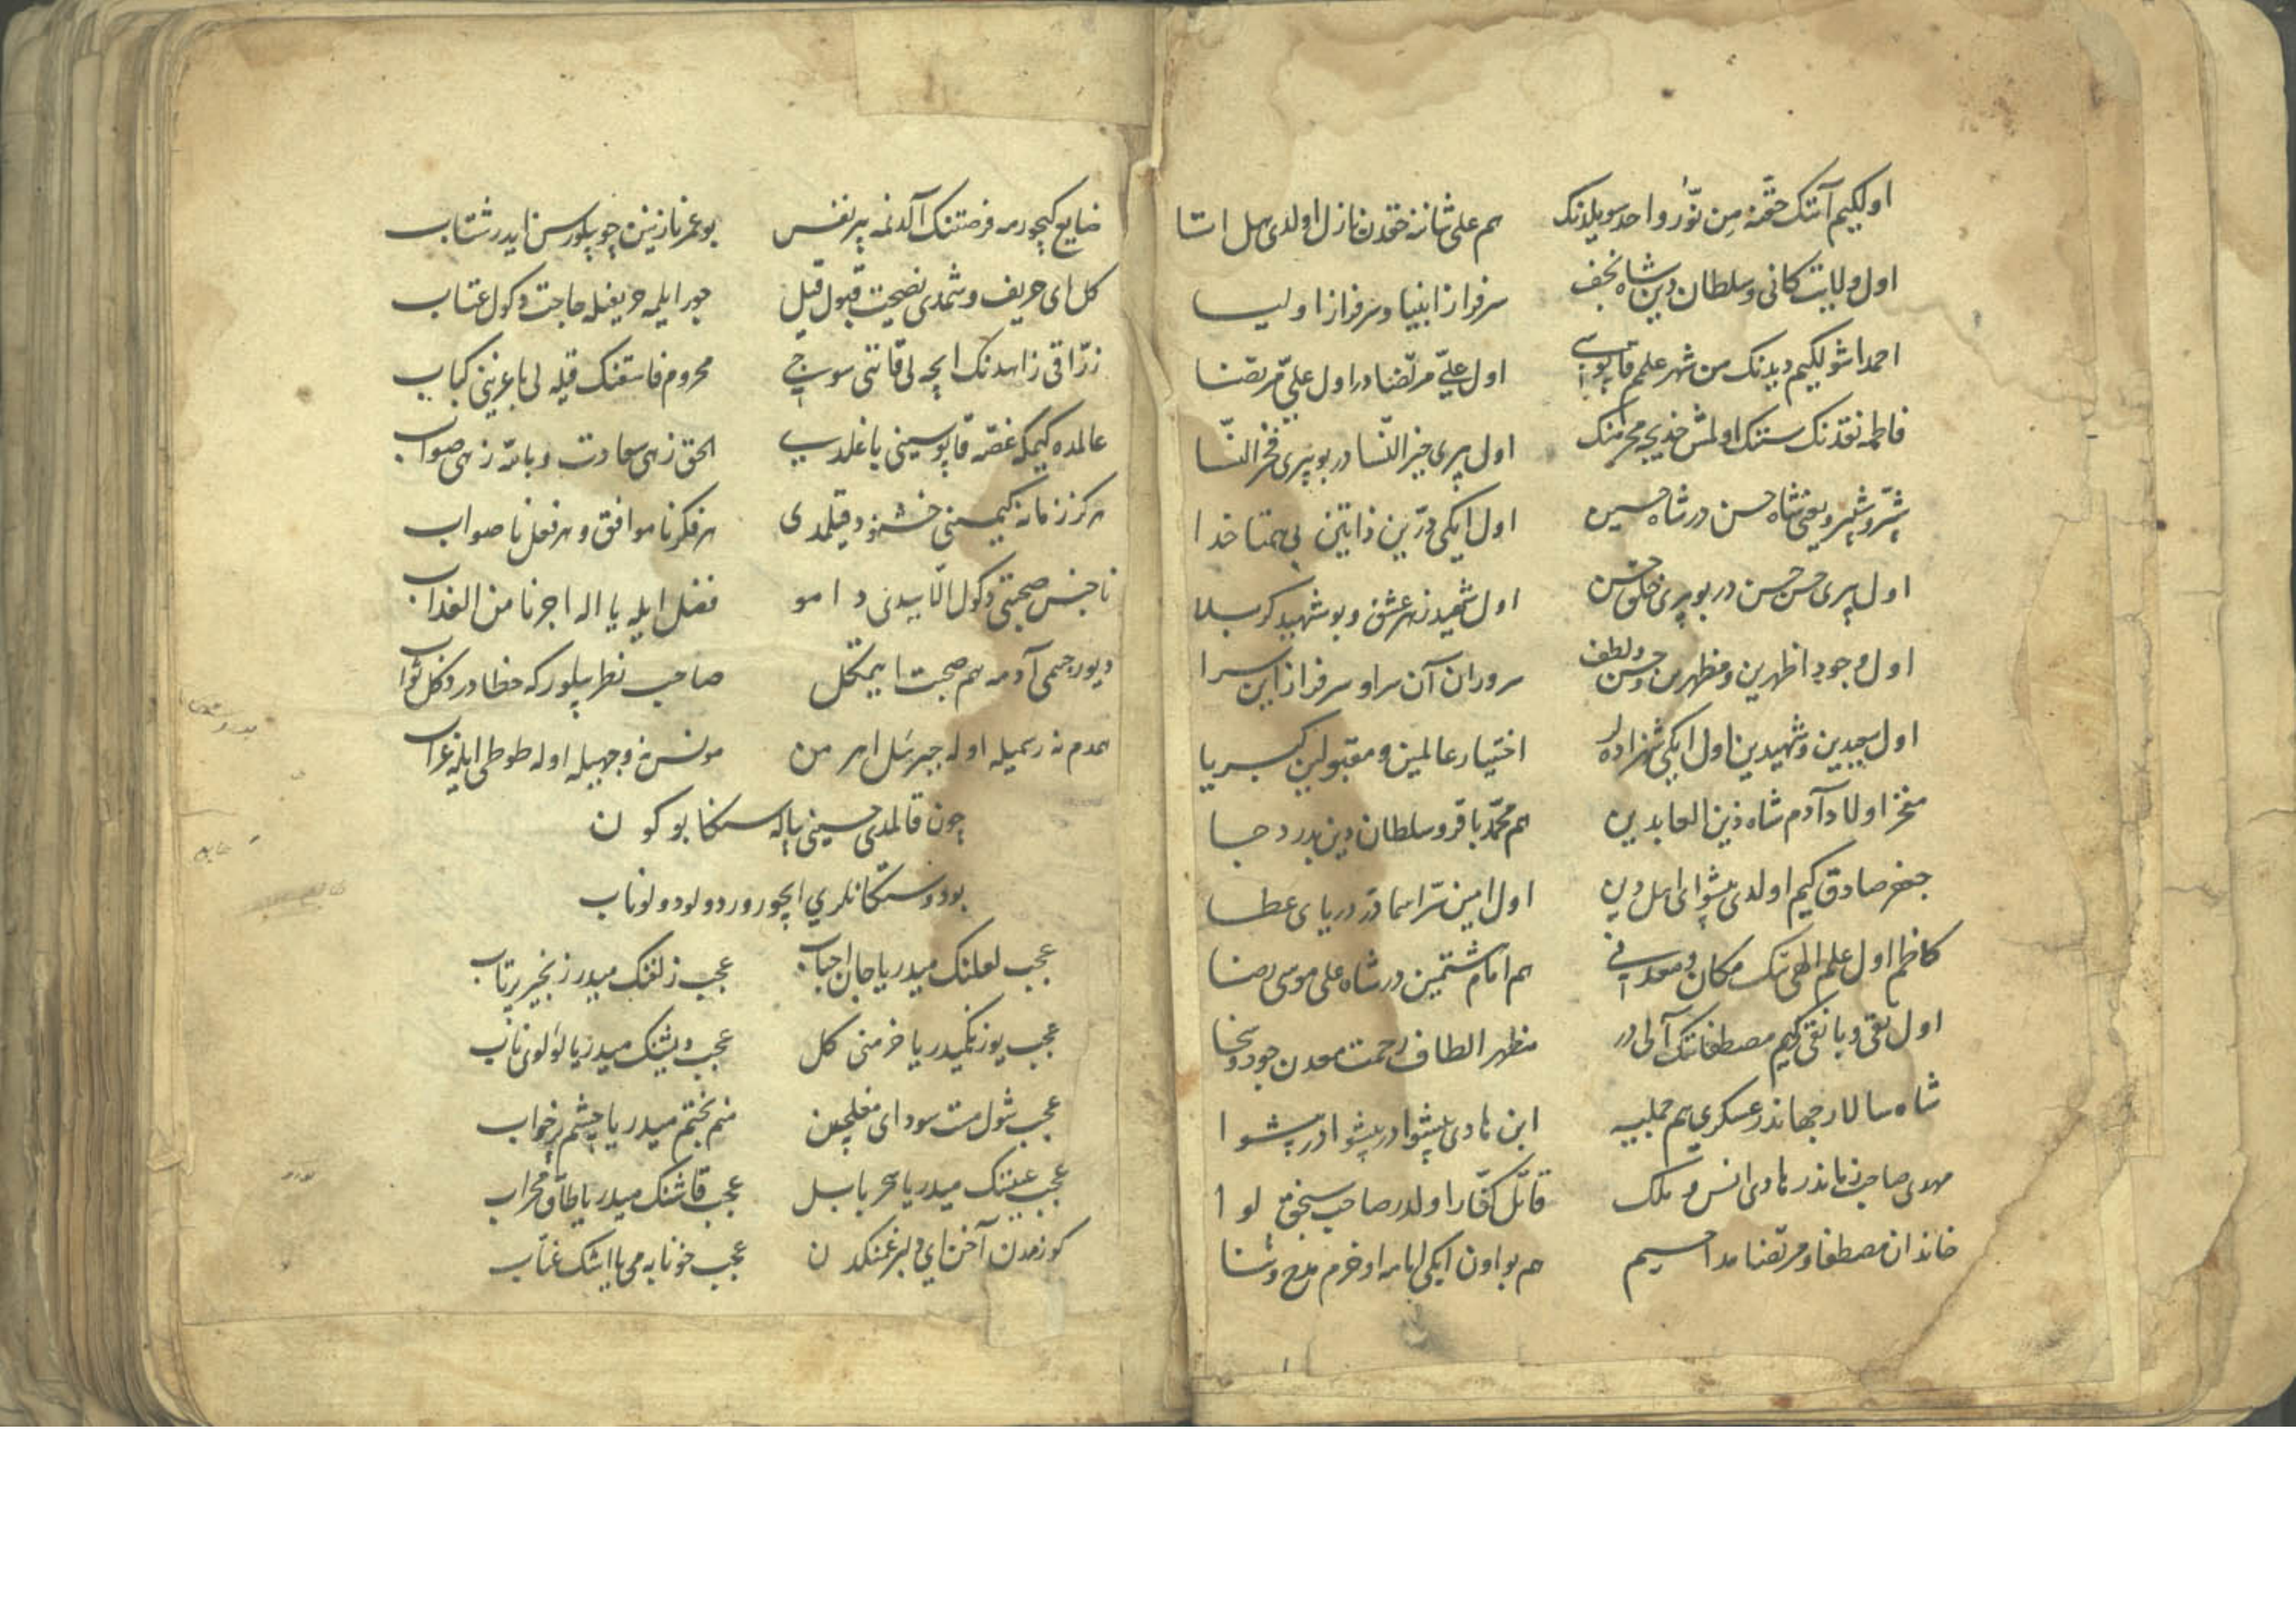 اولکیم آننک حقنه من نور واحد سویلدنک هم علی شاننه حقدن نازل اولدی هل اتا
اول ولایت کانی و سلطان دین شاه نجف سرفراز انبیا و سرفراز اولیا
احمدا شولکیم دیدنک من شهر علمم قاپوسی اول علی مرتضا در اول علی مرتضا
فاطمه نقدنک سننک اولمش خدیجه محرمنک اول بیری خیر النسا در بو بیری فخر النسا
شبر و شبیر و یعنی شاه حسن در شاه حسین اول ایکی درین ذاتین بی همتا خدا
اول بیری حسن حسن در بو بیری خلق حسن اول شهید زهر عشق و بو شهید کربلا
اول وجود اظهرین و مظهرین حسن و لطف سروران آن سرا و سرفراز این سرا
اول سعیدین و شهیدین اول ایکی شهزاده لر اختیار عالمین و مقبولین کبریا
مفخر اولاد آدم شاه زین العابدین هم محمد باقر و سلطان دین بدر دجا
جعفر صادق کیم اولدی پیشوای اهل دین اول امین سر اسما در دریای عطا
کاظم اول علم الهی ننک مکان و معدنی هم امام هشتمین در شاه علی موسی رضا
اول تقی و با نقی کیم مصطفاننک آلی در مظهر الطاف رحمت معدن جود و سخا
شاه سالار جهاندر عسکری هم جملییه ابن هادی پیشوا در پیشوا در پیشوا
مهدی صاحب زماندر هادی انس و ملک قاتل کفار اولدر صاحب سنجق لوا
خاندان مصطفا و مرتضا مداحییم هم بو اون ایکی امامه اوخرم مدح و ثنا
ضایع کیچورمه فرصتنک آلدنمه بیر نفس بو عمر نازنین چو بیلورسن ایدر شتاب
کل ای حریف وشمدی نصیحت قبول قیل جور ایلمه حریفله حاجت دکول عتاب
زراقی زاهدنک ایچه لی قاننی سوجی محروم فاسقنک قیله لی باغرینی کباب
عالمده کیمکه غصه قاپوسینی باغلدی الحق زهی سعادت و بالله زهی صواب
هرکز زمانه کیمسنی خشنود قیلمدی هر فکر نا موافق و هر فعل نا صواب
ناجنس صحبتی دکول الا یدنی دامو فضل ایله یا اله اجرنا من العذاب
دیو رجیمی آدمه هم صحبت ایتمکل صاحب نظر بیلور که خطا در دکل ثواب
همدم نه رسمیله اوله جبرئیل اهرمن مونس نه وجهیله اوله طوطی ایله غراب
چون قالمدی حسینی پیاله سکا بو کون
بو دوستکانلری ایچورور دولو دولو ناب
عجب لعلنک میدر یا جان احباب عجب زلفنک میدر زنجیر پرتاب
عجب یوزنکمیدر یا خرمنی کل عجب دیشنک میدر یا لولوی ناب
عجب شول مست سودای مغلچین منم بختم میدر یا چشم پرخواب
عجب عیننک میدر یا سحر بابل عجب قاشنک میدر یا طاق محراب
کوزمدن آخن ای دلبر غمنکدن عجب خونابه می یا اشک عناب